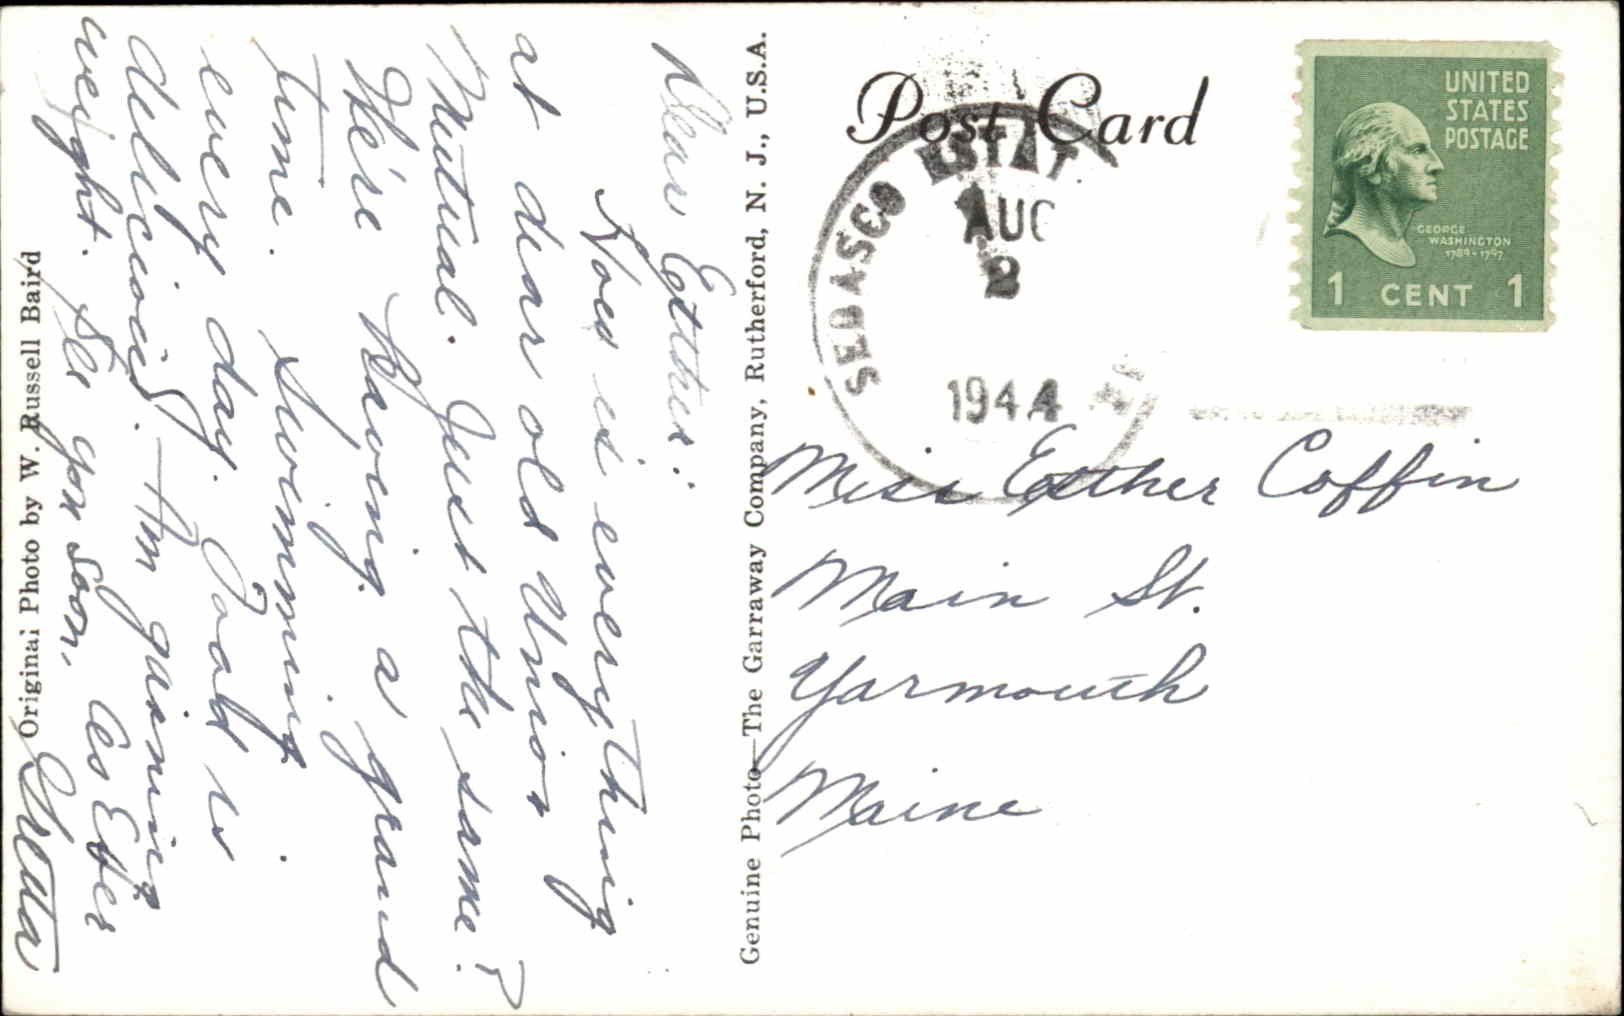 Post Card
UNITED
STATES
POSTAGE
GEORGE
WASHINGTON
1789-1797
1 CENT 1
SEBASCO ESTAT
AUG
2
1944
Dear Esther:
How is everything
at dear old Union
Mutual. Just the same?
We're having a grand
time. Swimming
every day. Food is
dellicious. Am gaining
weight. See you soon,
Gretta
Miss Esther Coffin
Main St.
Yarmouth
Maine
Genuine Photo—The Garraway Company, Rutherford, N. J., U.S.A.
Original Photo by W. Russell Baird